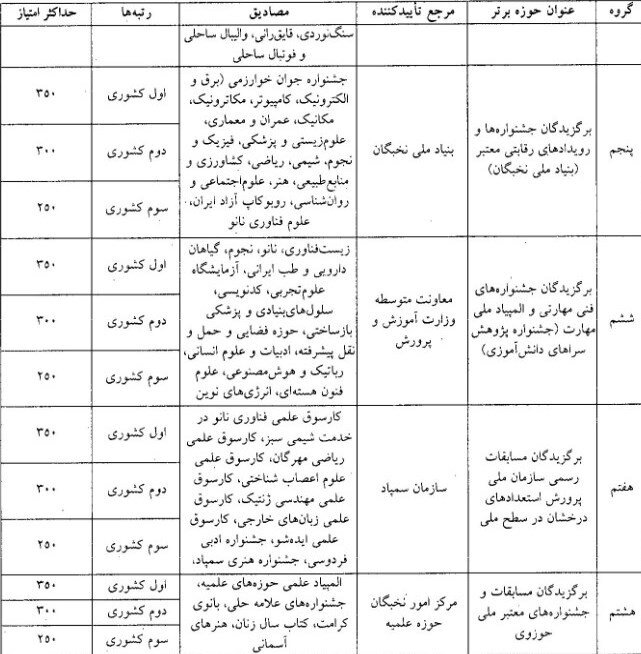 گروه
عنوان حوزه برتر
مرجع تأییدکننده
مصادیق
رتبه‌ها
حداکثر امتیاز
سنگ‌نوردی، قایق‌رانی، والیبال ساحلی
و فوتبال ساحلی
پنجم
برگزیدگان جشنواره‌ها و
رویدادهای رقابتی معتبر
(بنیاد ملی نخبگان)
بنیاد ملی نخبگان
جشنواره جوان خوارزمی (برق و
الکترونیک، کامپیوتر، مکاترونیک،
مکانیک، عمران و معماری،
علوم‌زیستی و پزشکی، فیزیک و
نجوم، شیمی، ریاضی، کشاورزی و
منابع‌طبیعی، هنر، علوم‌اجتماعی و
روان‌شناسی، روبوکاپ آزاد ایران،
علوم فناوری نانو
اول کشوری
۳۵۰
دوم کشوری
۳۰۰
سوم کشوری
۲۵۰
ششم
برگزیدگان جشنواره‌های
فنی مهارتی و المپیاد ملی
مهارت (جشنواره پژوهش
سراهای دانش‌آموزی)
معاونت متوسطه
وزارت آموزش و
پرورش
زیست‌فناوری، نانو، نجوم، گیاهان
دارویی و طب ایرانی، آزمایشگاه
علوم‌تجربی، کدنویسی،
سلول‌های‌بنیادی و پزشکی
بازساختی، حوزه فضایی و حمل و
نقل پیشرفته، ادبیات و علوم انسانی،
رباتیک و هوش‌مصنوعی، علوم
فنون هسته‌ای، انرژی‌های نوین
اول کشوری
۳۵۰
دوم کشوری
۳۰۰
سوم کشوری
۲۵۰
هفتم
برگزیدگان مسابقات
رسمی سازمان ملی
پرورش استعدادهای
درخشان در سطح ملی
سازمان سمپاد
کارسوق علمی فناوری نانو در
خدمت شیمی سبز، کارسوق علمی
ریاضی مهرگان، کارسوق علمی
علوم اعصاب شناختی، کارسوق
علمی مهندسی ژنتیک، کارسوق
علمی زبان‌های خارجی، کارسوق
علمی ایده‌شو، جشنواره ادبی
فردوسی، جشنواره هنری سمپاد،
اول کشوری
۳۵۰
دوم کشوری
۳۰۰
سوم کشوری
۲۵۰
هشتم
برگزیدگان مسابقات و
جشنواره‌های معتبر ملی
حوزوی
مرکز امور نخبگان
حوزه علمیه
المپیاد علمی حوزه‌های علمیه،
جشنواره‌های علامه حلی، بانوی
کرامت، کتاب سال زنان، هنرهای
آسمانی
اول کشوری
۳۵۰
دوم کشوری
۳۰۰
سوم کشوری
۲۵۰